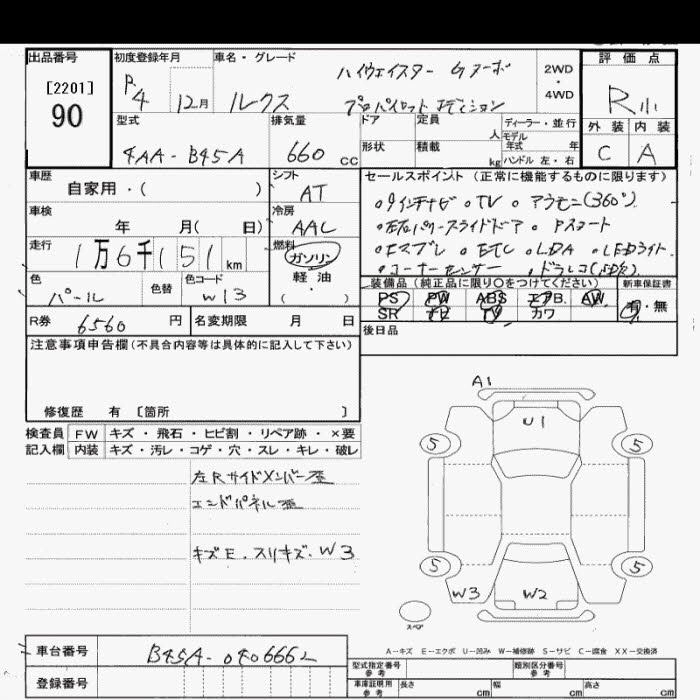 出品番号
[2201]
90
初度登録年月
R4 12月
車名・グレード
ハイウェイスター Gターボ
ルークス プロパイロット エディション
2WD
・
4WD
評価点
R小
外装 内装
C A
型式
4AA-B45A
排気量
660 cc
ドア
形状
定員
人
積載
kg
ディーラー・並行
モデル
年式 年
ハンドル 左・右
車歴
自家用・( )
シフト
AT
車検
年 月( 日)
冷房
AAC
走行
1万6千151 km
燃料
ガソリン
軽・油
( ・ )
色
パール
色替
色コード
W13
R券
6560 円
名変期限 月 日
セールスポイント(正常に機能するものに限ります)
○9インチナビ ○TV ○アラモニ(360°)
○左右パワースライドドア ○Pスタート
○Eスブレ ○ETC ○LDA ○LEDライト
○コーナーセンサー ○ドラレコ
装備品(純正品に限り○をつけてください)
PS PW ABS エアB. AW
SR ナビ TV カワ
新車保証書
有・無
後日品
注意事項申告欄(不具合内容等は具体的に記入して下さい)
修復歴 有 〔箇所 〕
検査員
記入欄
FW キズ・飛石・ヒビ割・リペア跡・×要
内装 キズ・汚レ・コゲ・穴・スレ・キレ・破レ
左Rサイドメンバー歪
エンドパネル歪
キズE.スリキズ.W3
A1
U1
5 5
5 5
W3 W2
スペア
A-キズ E-エクボ U-凹み W-補修跡 S-サビ C-腐食 XX-交換済
車台番号
B45A-0406662
登録番号
型式指定番号
参考
類別区分番号
参考
車庫証明用
参考
長さ cm
幅 cm
高さ cm